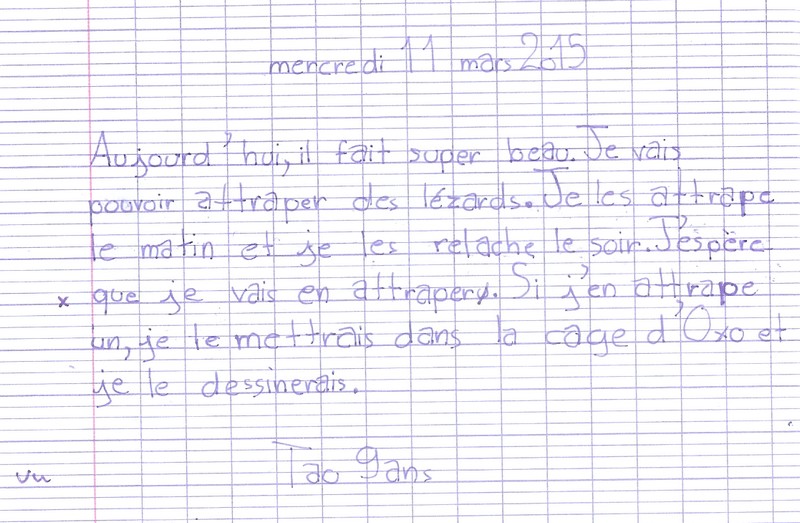 mercredi 11 mars 2015
Aujourd'hui, il fait super beau. Je vais
pouvoir attraper des lézards. Je les attrape
le matin et je les relache le soir. J'espère
x que je vais en attraper. Si j'en attrape
un, je le mettrais dans la cage d'Oxo et
je le dessinerais.
Tao 9 ans
vu